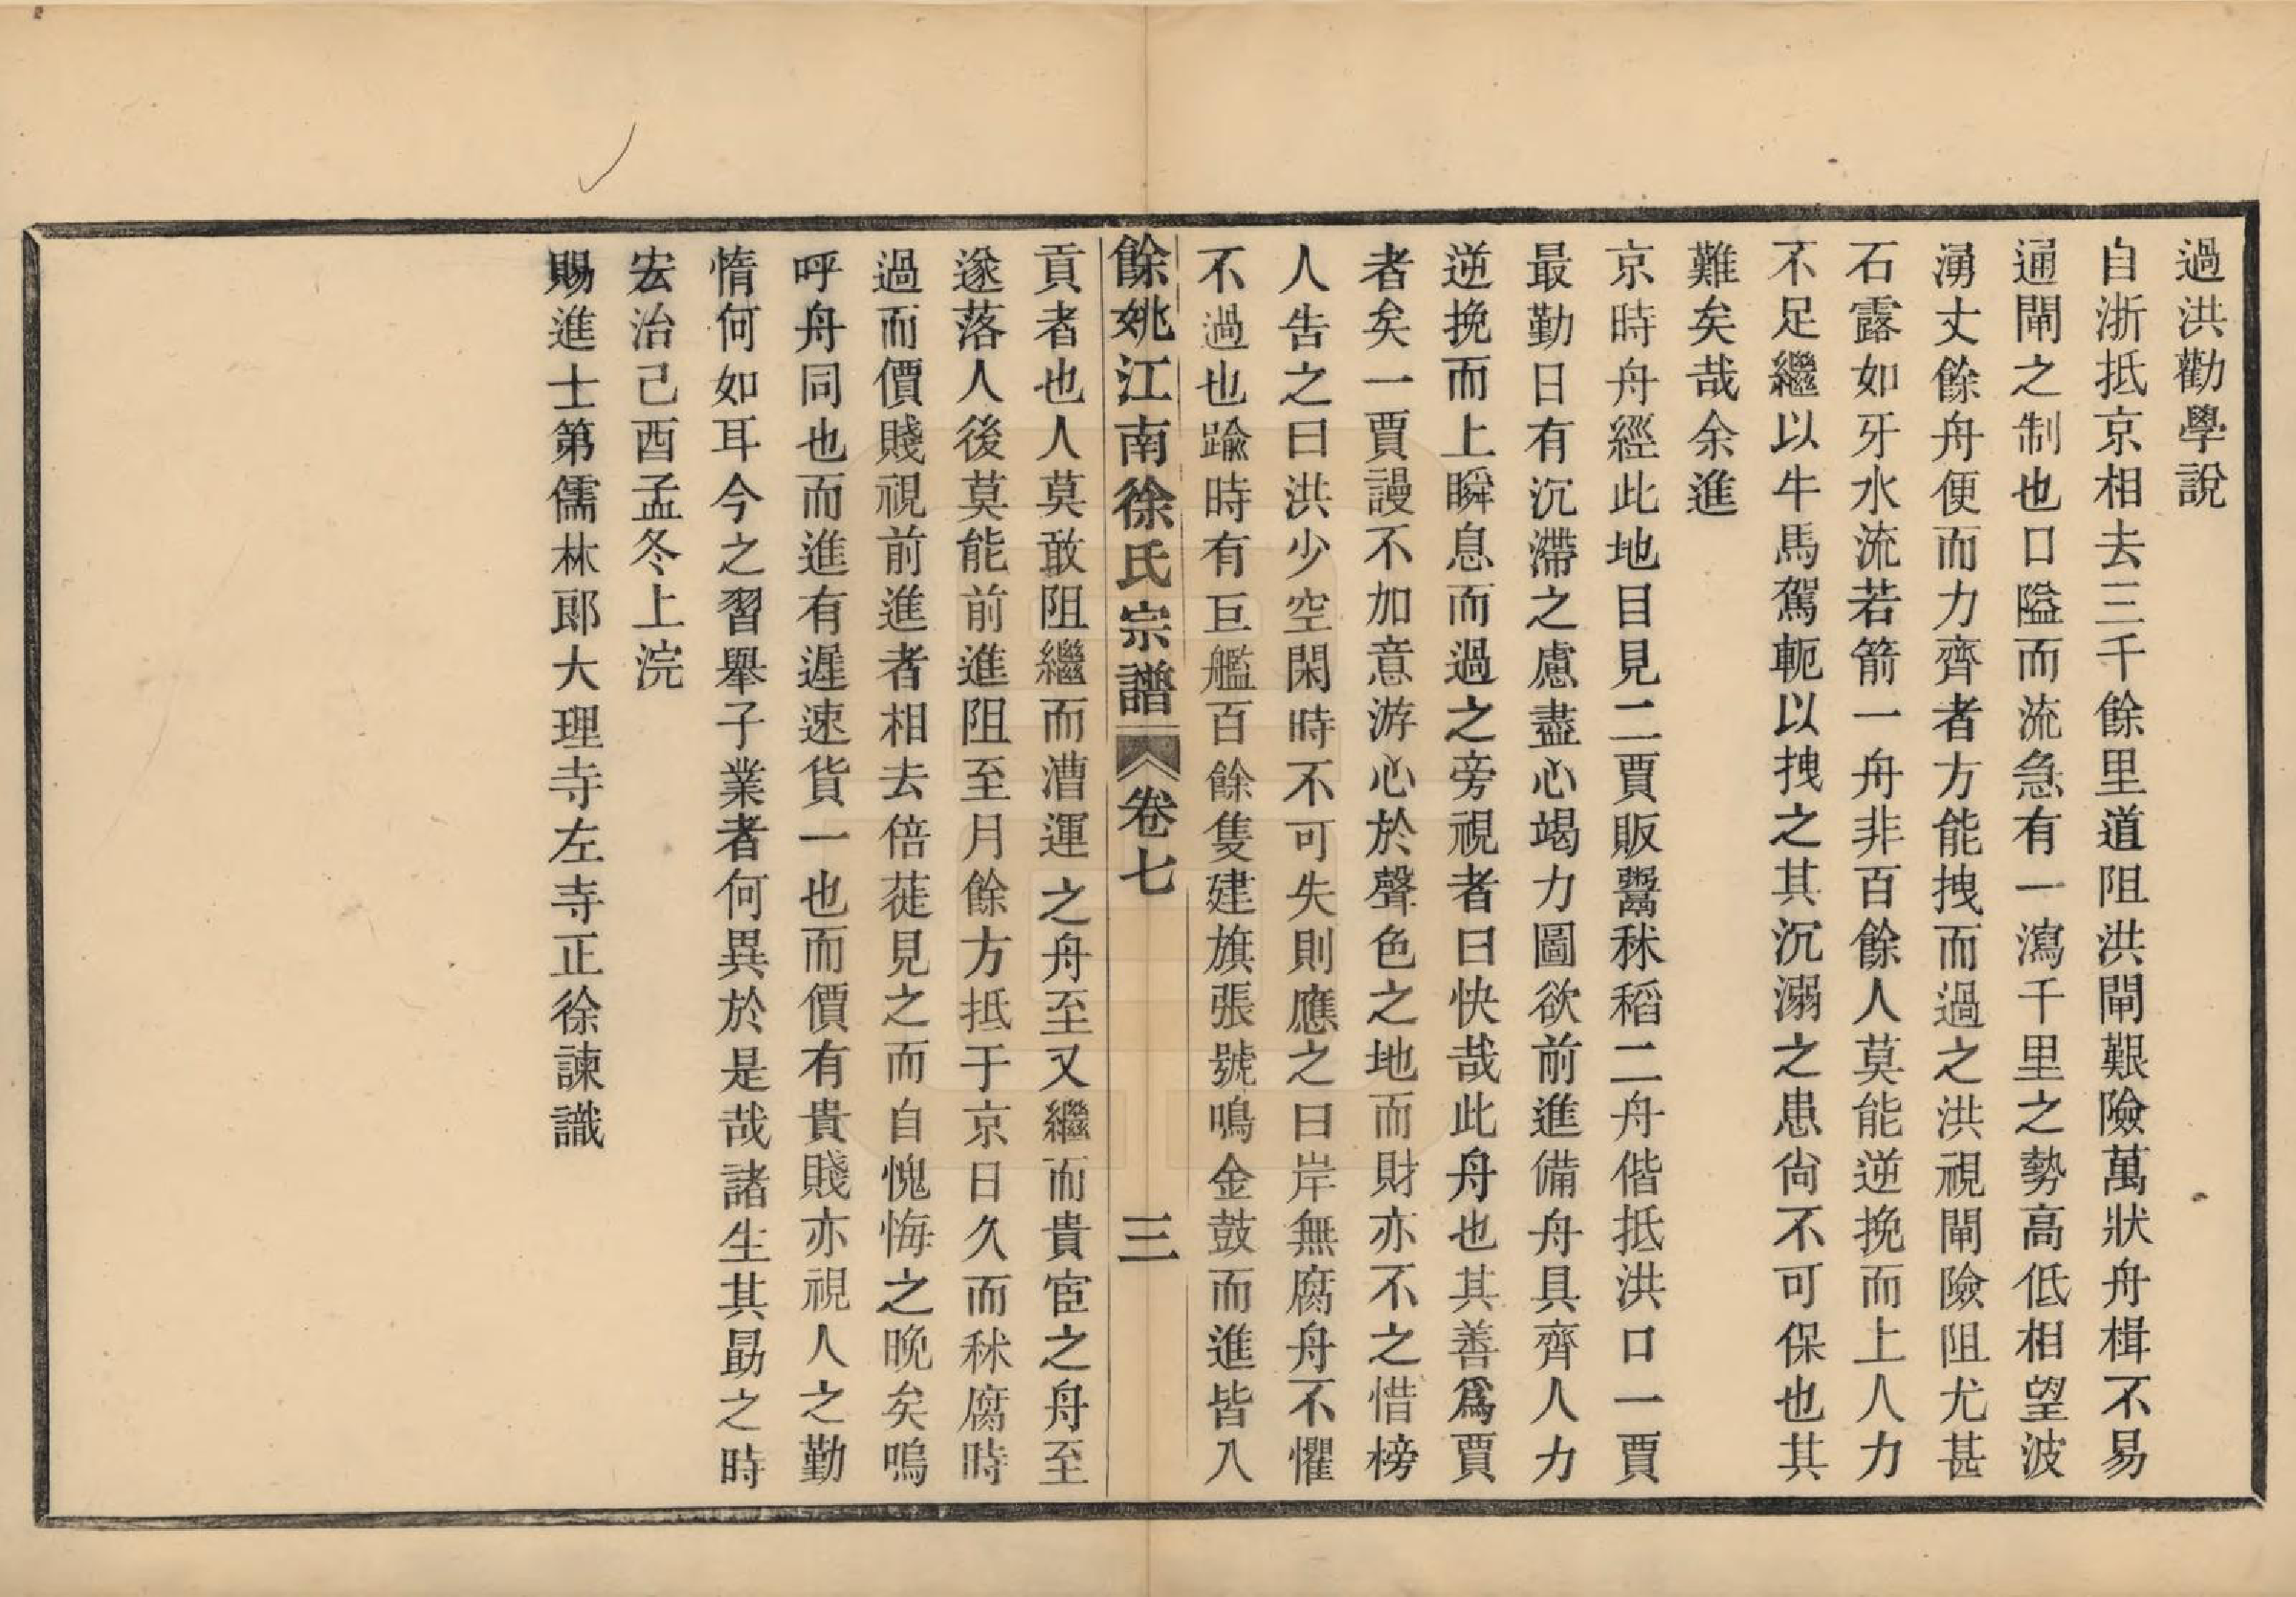 過洪勸學說
自浙抵京相去三千餘里道阻洪閘艱險萬狀舟楫不易
通閘之制也口隘而流急有一瀉千里之勢高低相望波
湧丈餘舟便而力齊者方能拽而過之洪視閘險阻尤甚
石露如牙水流若箭一舟非百餘人莫能逆挽而上人力
不足繼以牛馬駕軛以拽之其沉溺之患尙不可保也其
難矣哉余進
京時舟經此地目見二賈販鬻秫稻二舟偕抵洪口一賈
最勤日有沉滯之慮盡心竭力圖欲前進備舟具齊人力
逆挽而上瞬息而過之旁視者曰快哉此舟也其善爲賈
者矣一賈謾不加意游心於聲色之地而財亦不之惜榜
人告之曰洪少空閑時不可失則應之曰岸無腐舟不懼
不過也踰時有巨艦百餘隻建旗張號鳴金鼓而進皆入
餘姚江南徐氏宗譜 卷七 三
貢者也人莫敢阻繼而漕運之舟至又繼而貴宦之舟至
遂落人後莫能前進阻至月餘方抵于京日久而秫腐時
過而價賤視前進者相去倍蓰見之而自愧悔之晚矣嗚
呼舟同也而進有遲速貨一也而價有貴賤亦視人之勤
惰何如耳今之習舉子業者何異於是哉諸生其勗之時
宏治己酉孟冬上浣
賜進士第儒林郎大理寺左寺正徐諫識